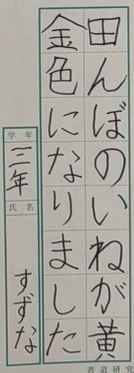 田んぼのいねが黄
金色になりました
学年
三年
氏名
すずな
書道研究